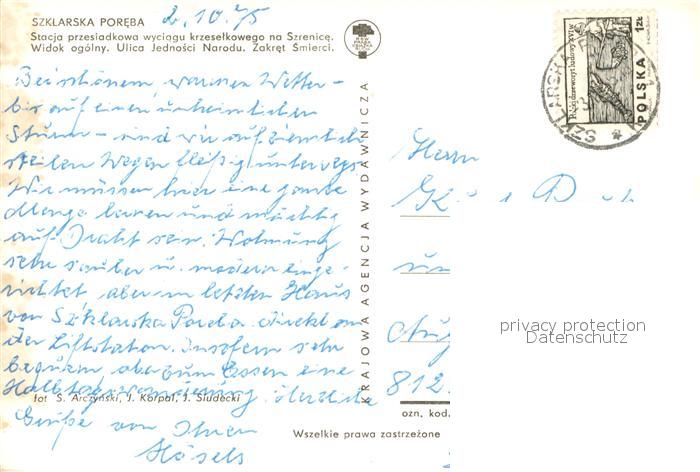 SZKLARSKA PORĘBA 2.10.75
Stacja przesiadkowa wyciągu krzesełkowego na Szrenicę.
Widok ogólny. Ulica Jedności Narodu. Zakręt Śmierci.
Bei schönem, warmen Wetter -
bis auf einen unheimlichen
Sturm - sind wir auf ziemlich
steilen Wegen fleißig unterwegs.
Wir müssen hier eine ganze
Menge laufen und mächtig
auf Draht sein. Wohnung
sehr sauber u. modern einge-
richtet, aber im letzten Haus
von Szklarska Poreba direkt an
der Liftstation. Insofern sehr
bequem aber zum Essen eine
Halbtagswanderung. Herzliche
fot S. Arczyński, J. Korpal, J. Siudecki
Grüße von Ihren
Hösels
KRAJOWA AGENCJA WYDAWNICZA
RSW PRASA KSIĄŻKA RUCH
Rabkiej
1 ZŁ
POLSKA
SZKLARSKA
Herrn
812
ozn. kod.
Wszelkie prawa zastrzeżone
privacy protection
Datenschutz